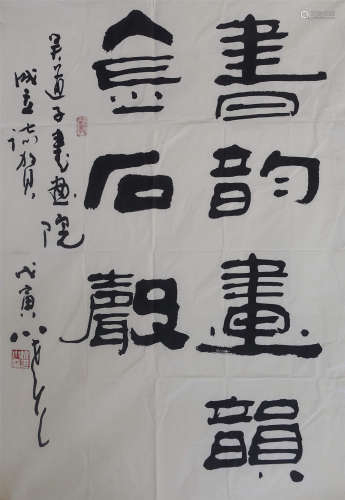 書韵畫韻
金石聲
吴道子書画院
成立誌賀
戊寅